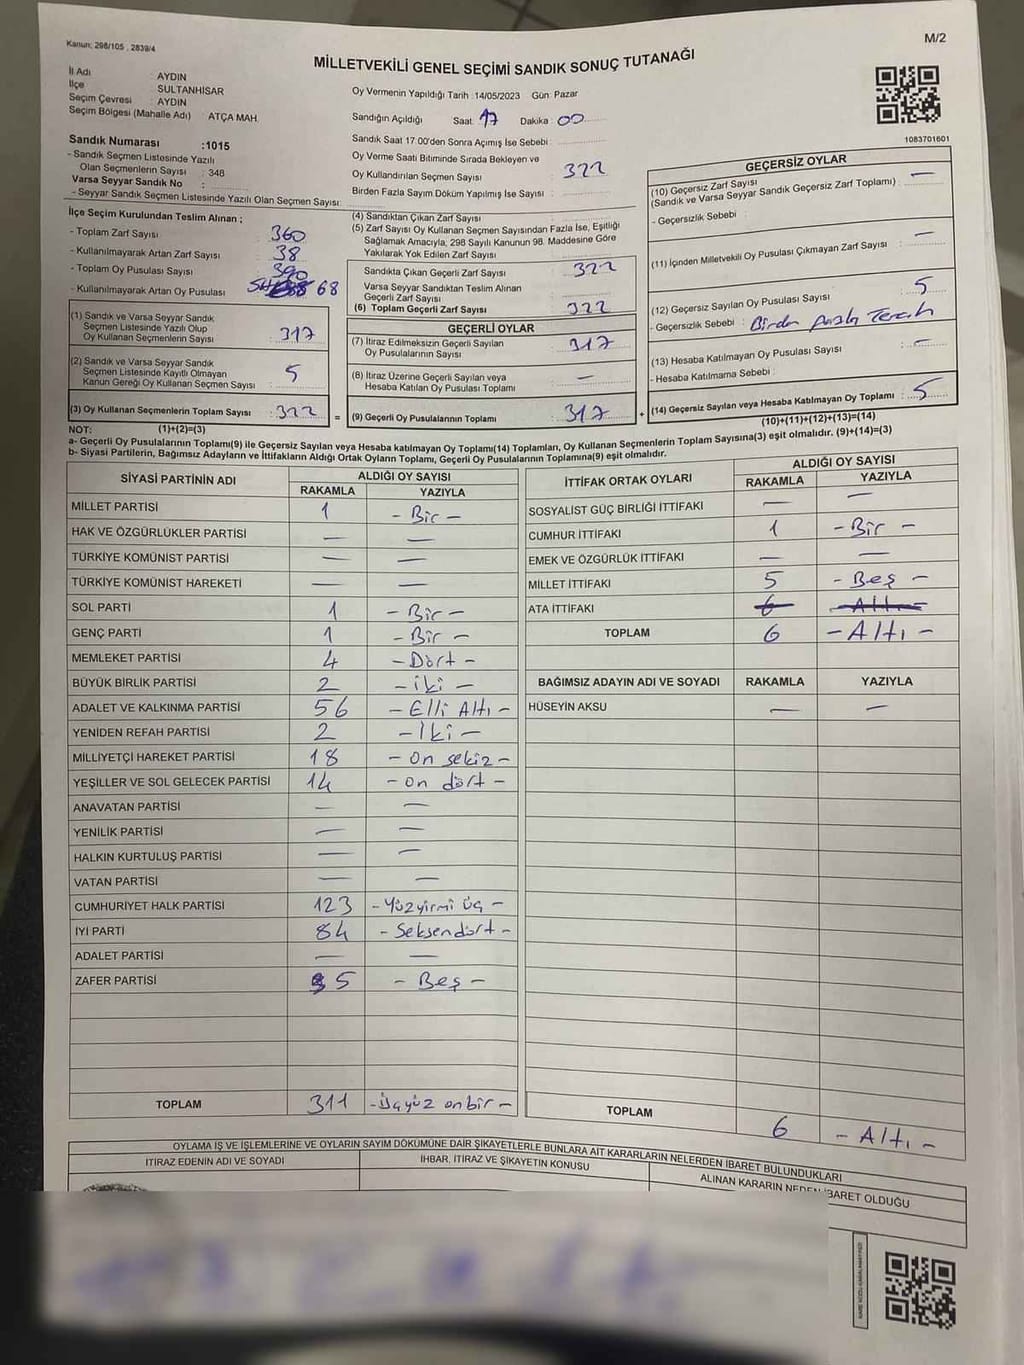 Kanun: 298/105 , 2839/4
M/2
MİLLETVEKİLİ GENEL SEÇİMİ SANDIK SONUÇ TUTANAĞI
İl Adı AYDIN
İlçe SULTANHİSAR
Seçim Çevresi AYDIN
Seçim Bölgesi (Mahalle Adı) ATÇA MAH.
Sandık Numarası :1015
- Sandık Seçmen Listesinde Yazılı
Olan Seçmenlerin Sayısı : 348
Varsa Seyyar Sandık No :
- Seyyar Sandık Seçmen Listesinde Yazılı Olan Seçmen Sayısı:
Oy Vermenin Yapıldığı Tarih :14/05/2023 Gün: Pazar
Sandığın Açıldığı Saat: 17 Dakika: 00
Sandık Saat 17:00'den Sonra Açımış İse Sebebi :
Oy Verme Saati Bitiminde Sırada Bekleyen ve
Oy Kullandırılan Seçmen Sayısı : 322
Birden Fazla Sayım Döküm Yapılmış İse Sayısı :
1083701601
İlçe Seçim Kurulundan Teslim Alınan ;
- Toplam Zarf Sayısı : 360
- Kullanılmayarak Artan Zarf Sayısı : 38
- Toplam Oy Pusulası Sayısı : 390
- Kullanılmayarak Artan Oy Pusulası 68
(1) Sandık ve Varsa Seyyar Sandık
Seçmen Listesinde Yazılı Olup
Oy Kullanan Seçmenlerin Sayısı : 317
(2) Sandık ve Varsa Seyyar Sandık
Seçmen Listesinde Kayıtlı Olmayan
Kanun Gereği Oy Kullanan Seçmen Sayısı : 5
(3) Oy Kullanan Seçmenlerin Toplam Sayısı : 322 =
(4) Sandıktan Çıkan Zarf Sayısı :
(5) Zarf Sayısı Oy Kullanan Seçmen Sayısından Fazla İse, Eşitliği
Sağlamak Amacıyla, 298 Sayılı Kanunun 98. Maddesine Göre
Yakılarak Yok Edilen Zarf Sayısı :
Sandıkta Çıkan Geçerli Zarf Sayısı : 322
Varsa Seyyar Sandıktan Teslim Alınan
Geçerli Zarf Sayısı :
(6) Toplam Geçerli Zarf Sayısı : 322
GEÇERLİ OYLAR
(7) İtiraz Edilmeksizin Geçerli Sayılan
Oy Pusulalarının Sayısı : 317
(8) İtiraz Üzerine Geçerli Sayılan veya
Hesaba Katılan Oy Pusulası Toplamı : —
(9) Geçerli Oy Pusulalarının Toplamı : 317 +
GEÇERSİZ OYLAR
(10) Geçersiz Zarf Sayısı
(Sandık ve Varsa Seyyar Sandık Geçersiz Zarf Toplamı) : —
- Geçersizlik Sebebi :
(11) İçinden Milletvekili Oy Pusulası Çıkmayan Zarf Sayısı : —
(12) Geçersiz Sayılan Oy Pusulası Sayısı : 5
- Geçersizlik Sebebi : Birden Fazla Tercih
(13) Hesaba Katılmayan Oy Pusulası Sayısı : —
- Hesaba Katılmama Sebebi :
(14) Geçersiz Sayılan veya Hesaba Katılmayan Oy Toplamı : 5
NOT: (1)+(2)=(3)
(10)+(11)+(12)+(13)=(14)
a- Geçerli Oy Pusulalarının Toplamı(9) ile Geçersiz Sayılan veya Hesaba katılmayan Oy Toplamı(14) Toplamları, Oy Kullanan Seçmenlerin Toplam Sayısına(3) eşit olmalıdır. (9)+(14)=(3)
b- Siyasi Partilerin, Bağımsız Adayların ve İttifakların Aldığı Ortak Oyların Toplamı, Geçerli Oy Pusulalarının Toplamına(9) eşit olmalıdır.
SİYASİ PARTİNİN ADI ALDIĞI OY SAYISI
RAKAMLA YAZIYLA
MİLLET PARTİSİ 1 - Bir -
HAK VE ÖZGÜRLÜKLER PARTİSİ — —
TÜRKİYE KOMÜNİST PARTİSİ — —
TÜRKİYE KOMÜNİST HAREKETİ — —
SOL PARTİ 1 - Bir -
GENÇ PARTİ 1 - Bir -
MEMLEKET PARTİSİ 4 - Dört -
BÜYÜK BİRLİK PARTİSİ 2 - İki -
ADALET VE KALKINMA PARTİSİ 56 - Elli Altı -
YENİDEN REFAH PARTİSİ 2 - İki -
MİLLİYETÇİ HAREKET PARTİSİ 18 - On sekiz -
YEŞİLLER VE SOL GELECEK PARTİSİ 14 - on dört -
ANAVATAN PARTİSİ — —
YENİLİK PARTİSİ — —
HALKIN KURTULUŞ PARTİSİ — —
VATAN PARTİSİ — —
CUMHURİYET HALK PARTİSİ 123 - Yüzyirmi üç -
İYİ PARTİ 84 - Seksendört -
ADALET PARTİSİ — —
ZAFER PARTİSİ 5 - Beş -
TOPLAM 311 - Üçyüz onbir -
İTTİFAK ORTAK OYLARI ALDIĞI OY SAYISI
RAKAMLA YAZIYLA
SOSYALİST GÜÇ BİRLİĞİ İTTİFAKI — —
CUMHUR İTTİFAKI 1 - Bir -
EMEK VE ÖZGÜRLÜK İTTİFAKI — —
MİLLET İTTİFAKI 5 - Beş -
ATA İTTİFAKI 6 - Altı -
TOPLAM 6 - Altı -
BAĞIMSIZ ADAYIN ADI VE SOYADI RAKAMLA YAZIYLA
HÜSEYİN AKSU — —
TOPLAM 6 - Altı -
OYLAMA İŞ VE İŞLEMLERİNE VE OYLARIN SAYIM DÖKÜMÜNE DAİR ŞİKAYETLERLE BUNLARA AİT KARARLARIN NELERDEN İBARET BULUNDUKLARI
İTİRAZ EDENİN ADI VE SOYADI İHBAR, İTİRAZ VE ŞİKAYETİN KONUSU ALINAN KARARIN NEDEN İBARET OLDUĞU